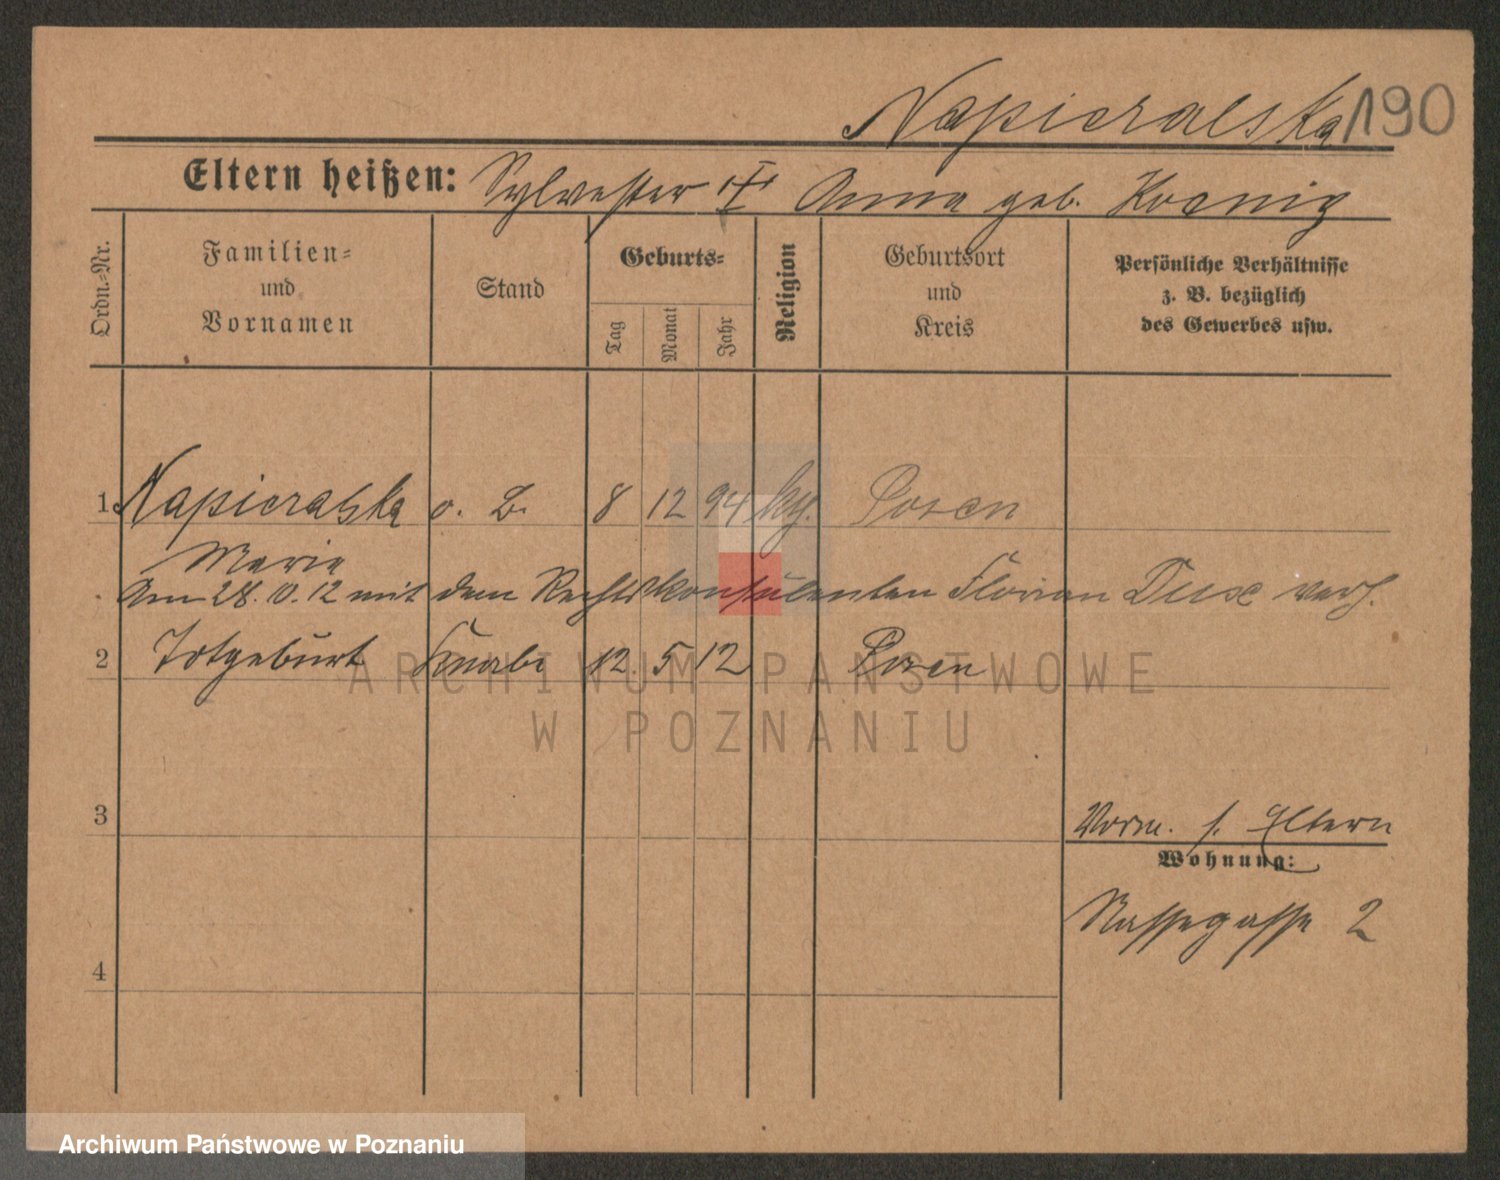 Napieralska 190
Eltern heißen: Sylvester Anna geb. Koenig
Ordn.-Nr.
Familien-
und
Vornamen
Stand
Geburts-
Tag
Monat
Jahr
Religion
Geburtsort
und
Kreis
Persönliche Verhältnisse
z. B. bezüglich
des Gewerbes usw.
1 Napieralska o. B. 8 12 94 Posen
Maria
Am 28. 10. 12 mit dem Rechtskonsulenten Florian verh.
2 Totgeburt Knabe 12. 5 12 Posen
ARCHIWUM PAŃSTWOWE
W POZNANIU
3
Vorm. s. Eltern
Wohnung:
Nassegasse 2
4
Archiwum Państwowe w Poznaniu